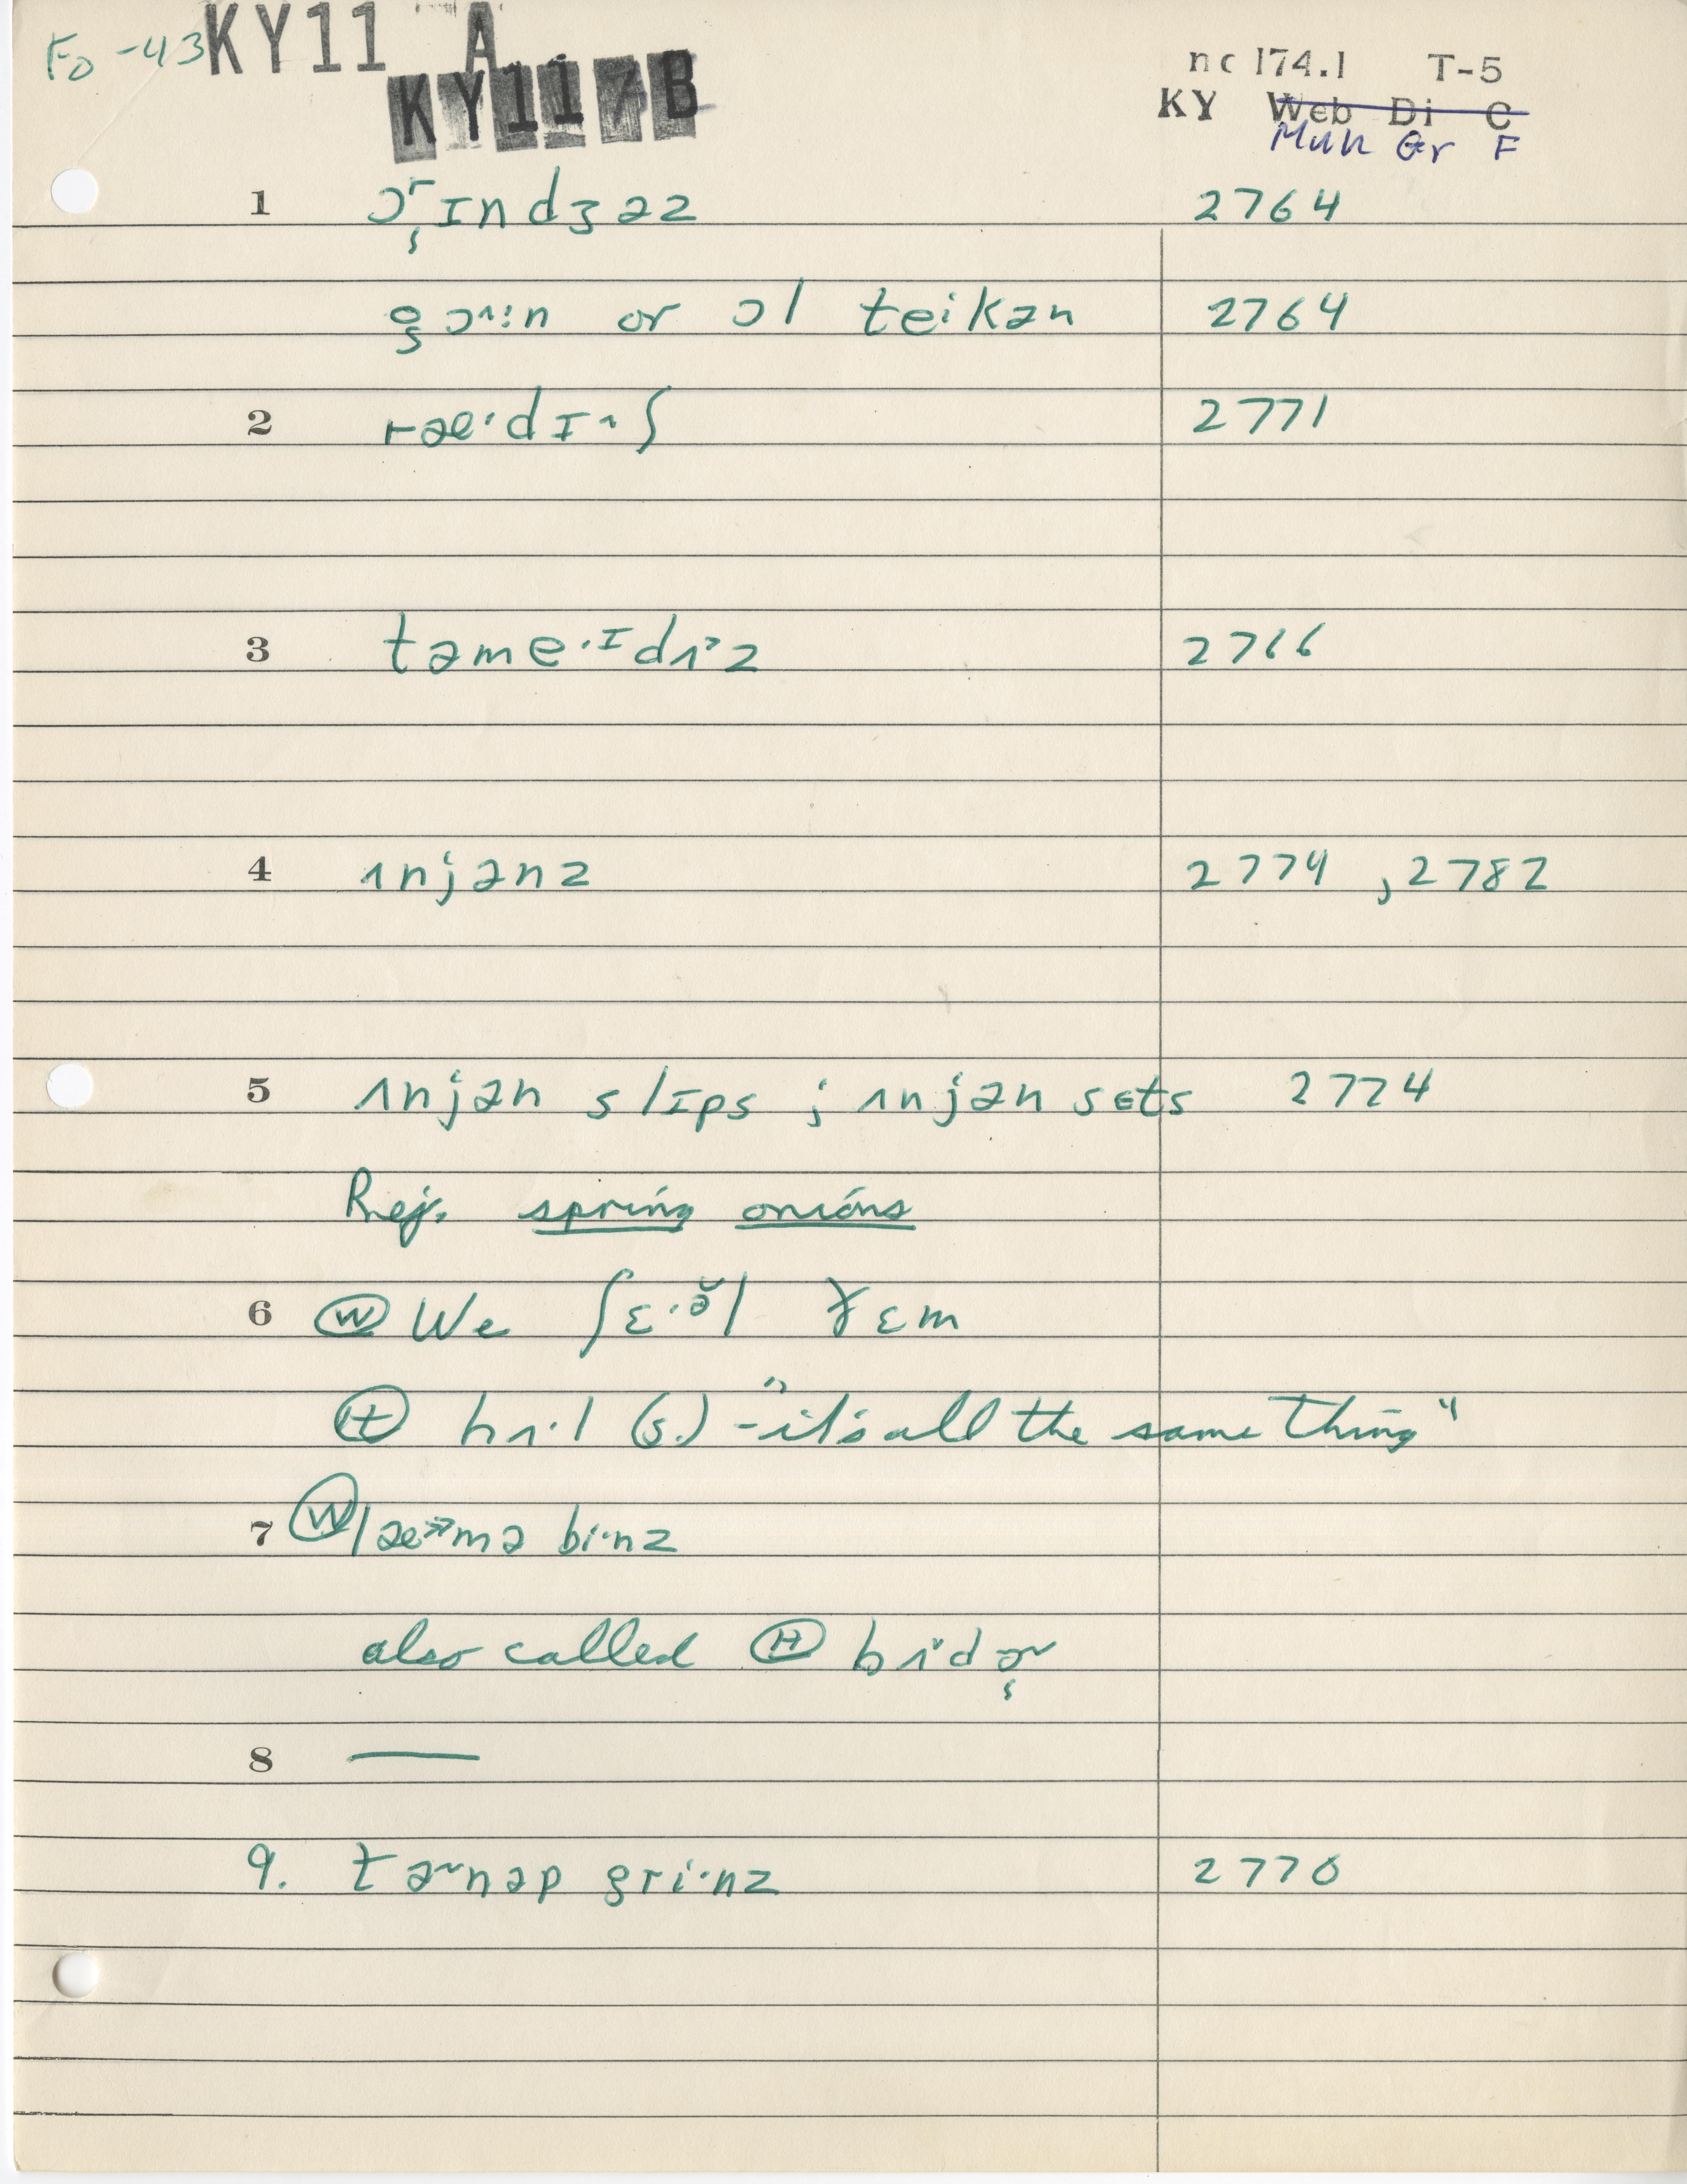 Fo -43 KY11 A
KY11/B
nc 174.1 T-5
KY Web Di C
Mun Gr F
1 ɔrɪndʒəz 2764
gɔɪn or ɔl teikən 2764
2 rædɪʃ 2771
3 təme·ɪdɨz 2766
4 ʌnjənz 2774 , 2782
5 ʌnjən slɪps ; ʌnjən sɛts 2774
Rej. spring onions
6 Ⓦ We ʃɛ·ə̆l ðɛm
Ⓗ hʌ·l (s.) - "it's all the same thing"
7 Ⓦ læmə bi·nz
also called Ⓗ bʌdɚ
8 —
9. tɚnəp gri·nz 2770